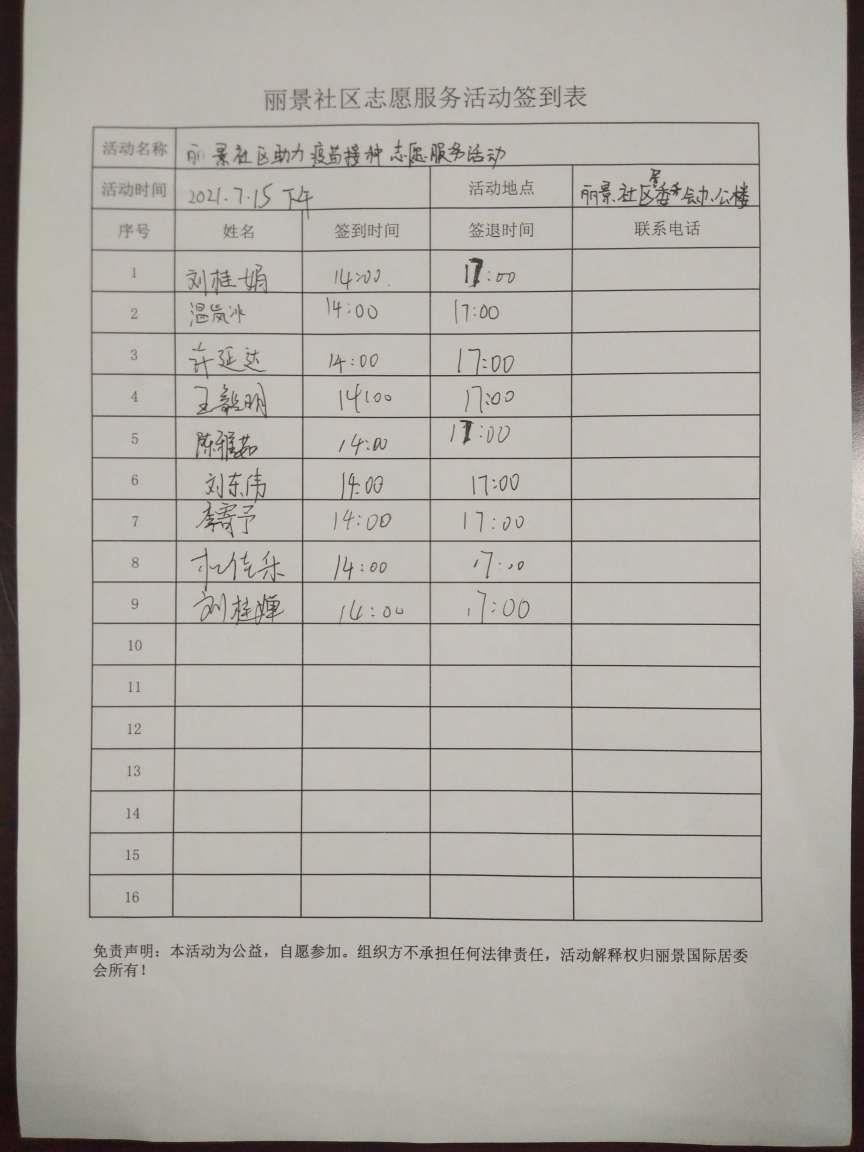 丽景社区志愿服务活动签到表
活动名称 丽景社区助力疫苗接种志愿服务活动
活动时间 2021.7.15 下午 活动地点 丽景社区居委会办公楼
序号 姓名 签到时间 签退时间 联系电话
1 刘桂娟 14:00 17:00
2 温岚冰 14:00 17:00
3 许延达 14:00 17:00
4 王毅明 14:00 17:00
5 陈雅茹 14:00 17:00
6 刘东伟 14:00 17:00
7 李寄予 14:00 17:00
8 佳乐 14:00 17:00
9 刘桂 14:00 17:00
10
11
12
13
14
15
16
免责声明：本活动为公益，自愿参加。组织方不承担任何法律责任，活动解释权归丽景国际居委
会所有！